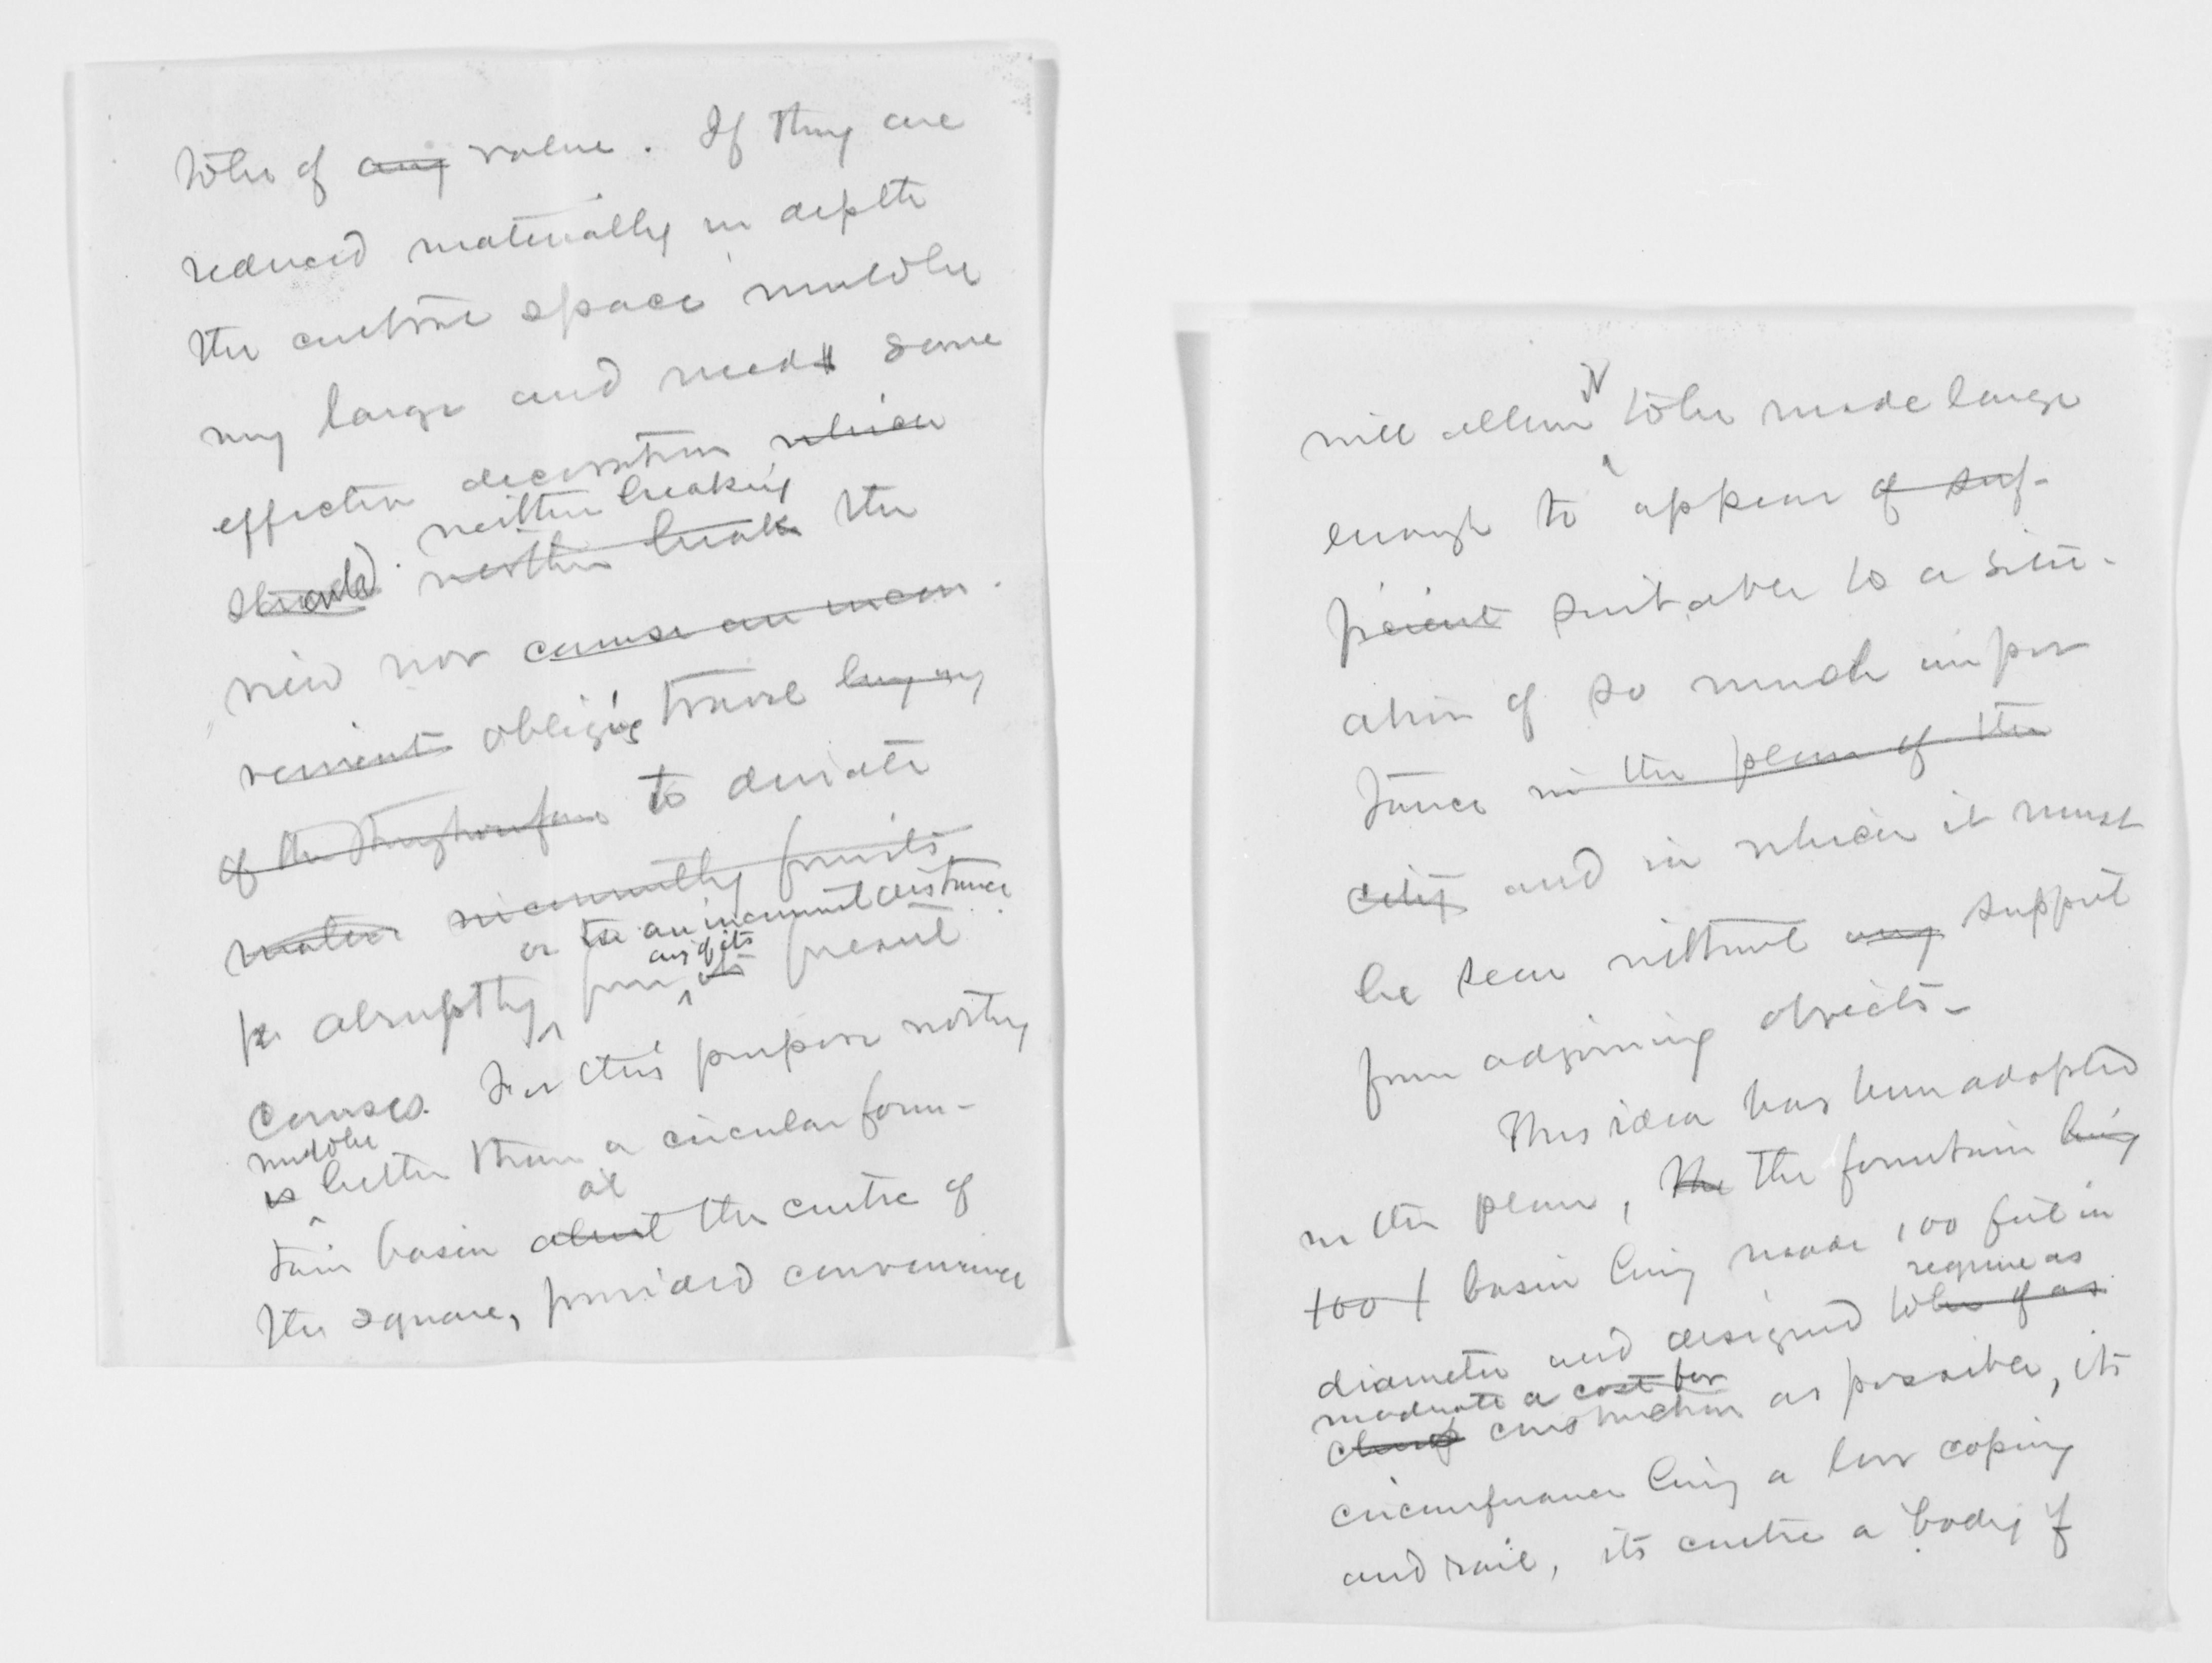 to be of any value. If they are
reduced materially in depth
the central space would be
very large and needs some
effective decoration which
neither breaking
should neither break the
view nor cause an incon-
venient obliging travel
of the thoroughfare to deviate
or to an inconvenient distance
any of its
abruptly, from its present
courses. For this purpose nothing
would be
is better than a circular foun-
at
tain basin about the centre of
the square, provided convenience
it
will allow to be made large
enough to appear of suf-
ficient suitable to a situ-
ation of so much impor
tance in the plan of the
city and in which it must
be seen without any support
from adjoining objects-
This idea has been adopted
in the plan, the the fountain being
100 f basin being made 100 feet in
require as
diameter and designed to be of as
moderate a cost for
cheap construction as possible, its
circumference being a low coping
and rail, its centre a body of